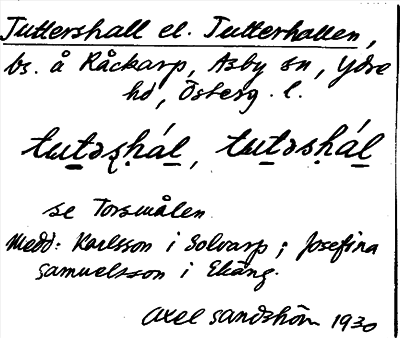 Tuttershall el. Tutterhallen,
bs. å Råckarp, Asby sn, Ydre
hd, Österg. l.
tutəʂhál, tutəsḥál
se Torsmålen.
Medd: Karlsson i Solvarp; Josefina
Samuelsson i Ekäng.
Axel Sandström 1930